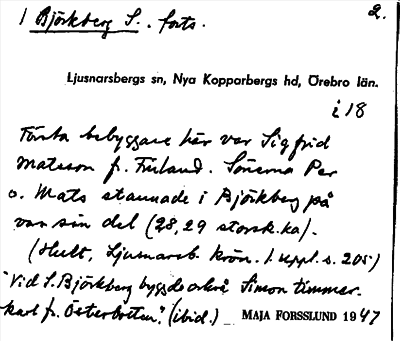 1 Björkberg S. forts. 2.
Ljusnarsbergs sn, Nya Kopparbergs hd, Örebro län.
i 18
Första bebyggare här var Sigfrid
Matsson fr. Finland. Sönerna Per
o. Mats stannade i Björkberg på
var sin del (28, 29 storsk.ka).
(Hult, Ljusnarsb. krön. 1. uppl. s. 205)
"Vid S. Björkberg byggde också Simon timmer-
karl fr. Österbotten". (ibid.) MAJA FORSSLUND 1947